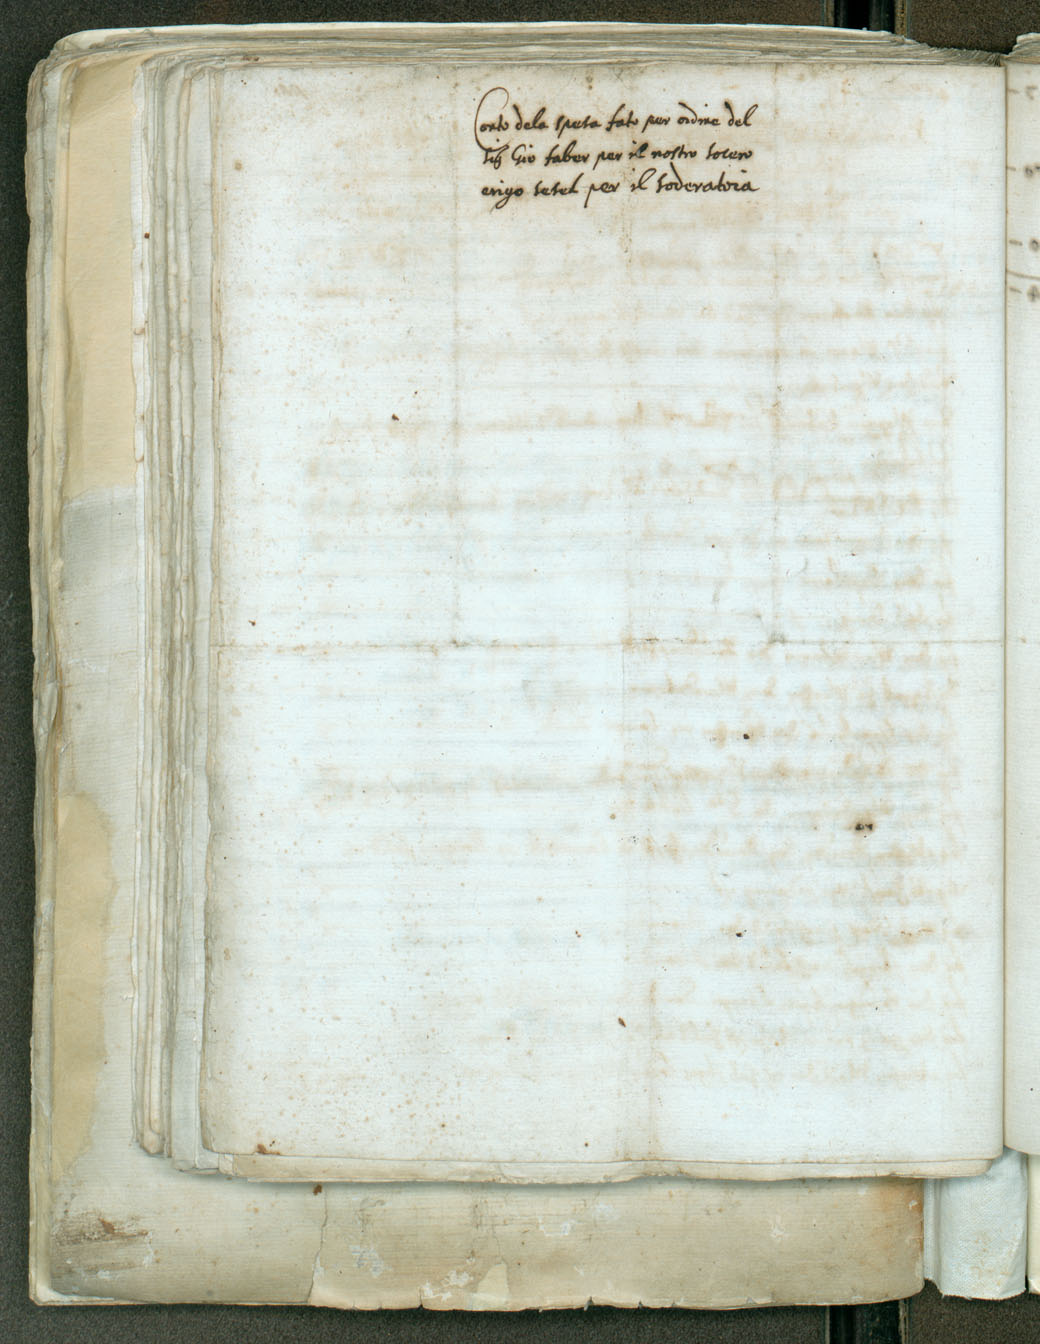 Conto dela spesa fato per ordine del
Sig Gio faber per il nostro socero
erigo sesel per il soderatoia